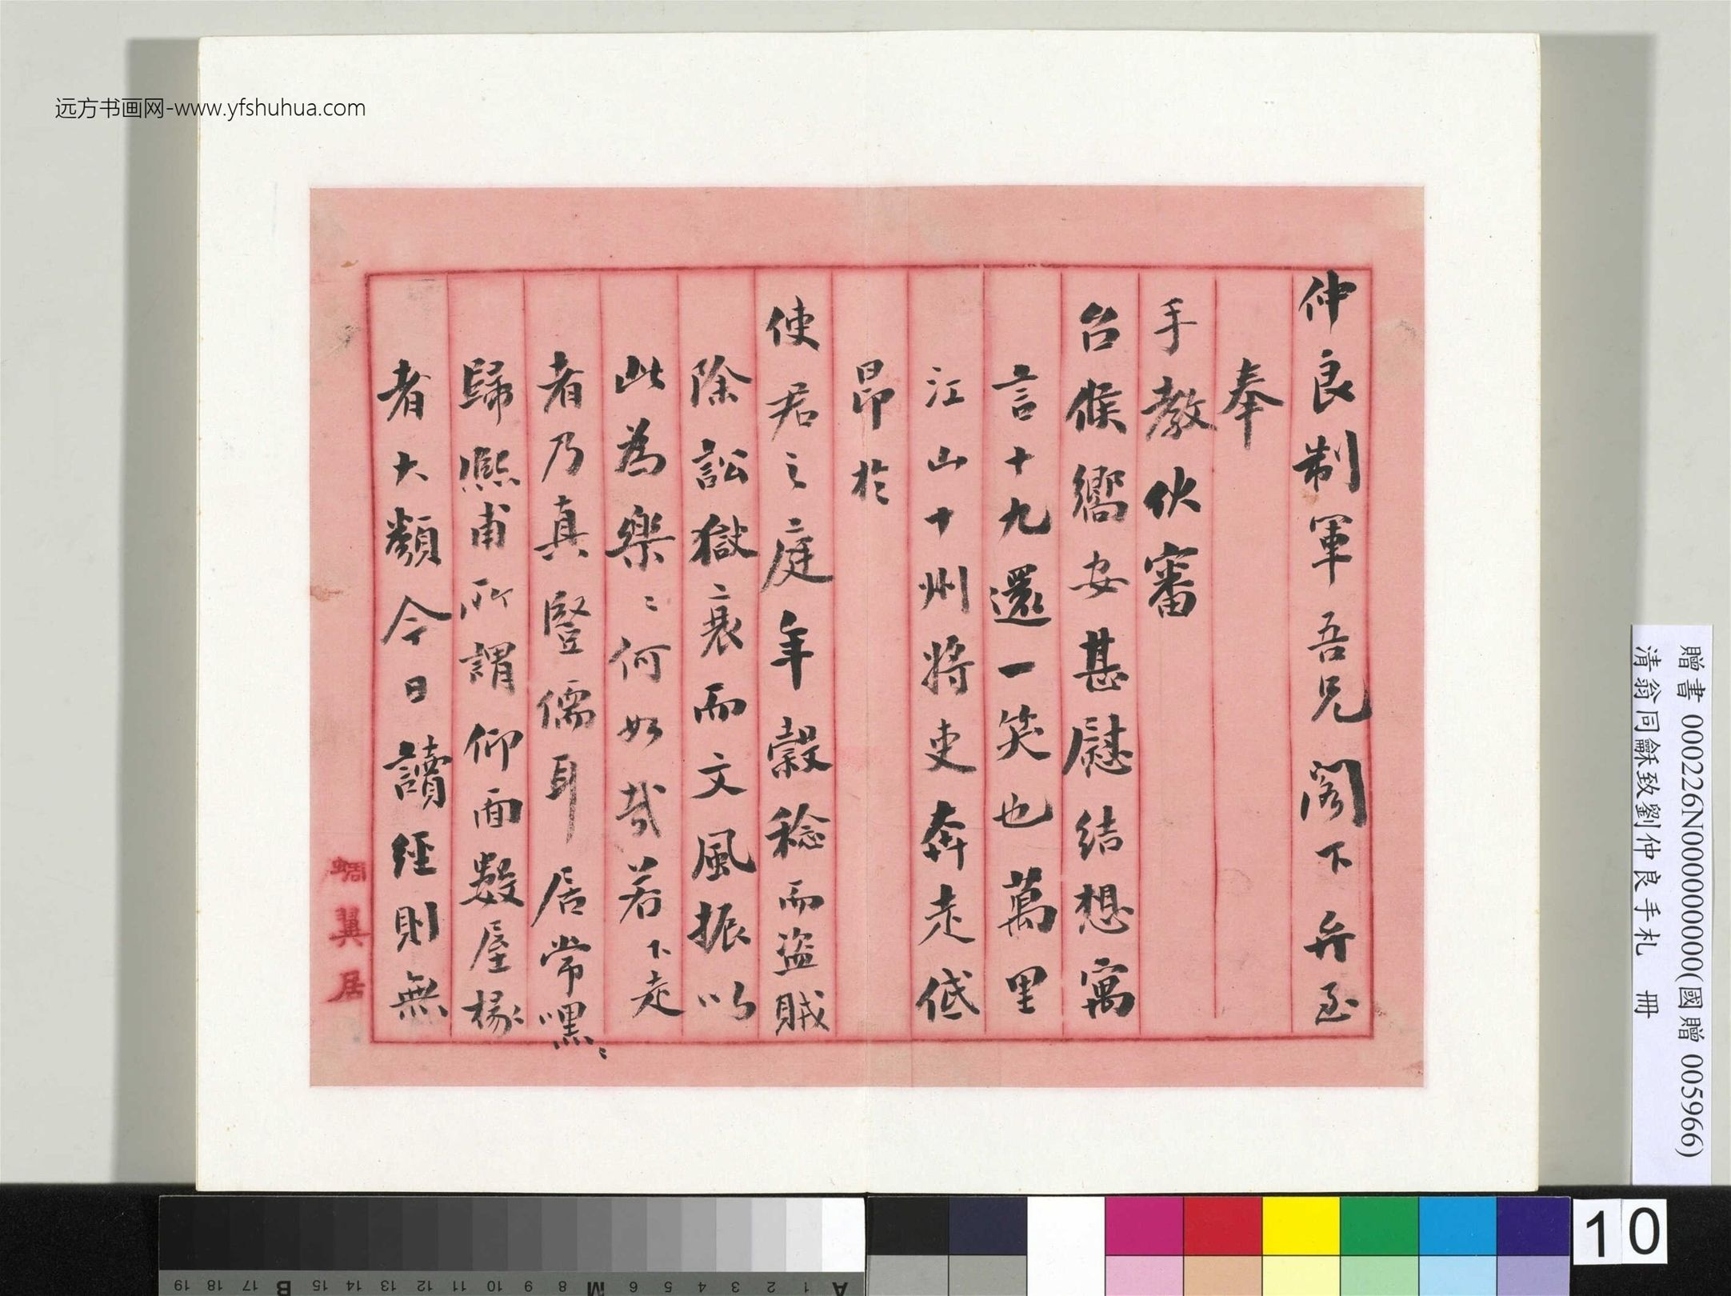 远方书画网-www.yfshuhua.com
仲良制軍吾兄閣下弁至
奉
手教伏審
台候嚮安甚慰結想寓
言十九還一笑也萬里
江山十州將吏奔走低
昂於
使君之庭年穀稔而盜賊
除訟獄衰而文風振以
此為樂〻何如哉若下走
者乃真豎儒耳居常嘿〻
歸熙甫所謂仰面數屋椽
者大類今日讀經則無
蜩翼居
贈書 000226N000000000(國贈 005966)
清翁同龢致劉仲良手札 冊
10
19 18 17 B 16 15 14 13 12 11 10 9 8 M 7 6 5 4 3 2 1 A